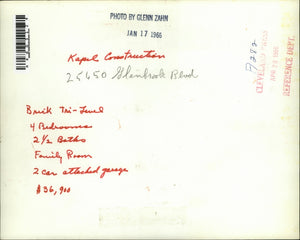 PHOTO BY GLENN ZAHN
JAN 17 1966
Kapel Construction
25650 Glenbrook Blvd
Brick Tri-Level
4 Bedrooms
2 1/2 Baths
Family Room
2 car attached garage
$36,900
CLEVELAND PRESS
REFERENCE DEPT.